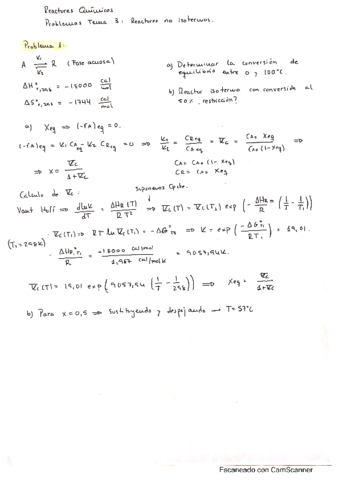 Reactores Químicos
Problemas Tema 3: Reactores no isotermos.
Problema 1:
A ⇌ R (Fase acuosa)
K1
K2
ΔH°r,298 = -18000 cal/mol
ΔS°r,298 = -1744 cal/mol
a) Determinar la conversión de equilibrio entre 0 y 100°C.
b) Reactor isotermo con conversión al 50%, restricción?
a) Xeq ⇒ (-rA)eq = 0.
(-rA)eq = K1 CAeq - K2 CReq = 0 ⇒ K1/K2 = CReq/CAeq = Kc = CAo Xeq / CAo (1-Xeq)
⇒ X = Kc / 1+Kc
CA = CAo (1-Xeq)
CR = CAo Xeq
Calculo de Kc: Suponemos Cp cte.
Vant Hoff ⇒ dlnK/dT = ΔHR(T)/RT² ⇒ Kc(T) = Kc(T1) exp(-ΔHR/R (1/T - 1/T1))
(T1=298K) · Kc(T1) ⇒ RT ln Kc(T1) = -ΔG°T1 ⇒ K = exp(-ΔG°T1/RT1) = 19,01.
· ΔHR°T1/R = -18000 cal/mol / 1,987 cal/molK = 9057,54K.
Kc(T) = 19,01 exp(9057,54 (1/T - 1/298)) ⇒ Xeq = Kc/1+Kc
b) Para x = 0,5 ⇒ Sustituyendo y despejando → T=57°C
Escaneado con CamScanner